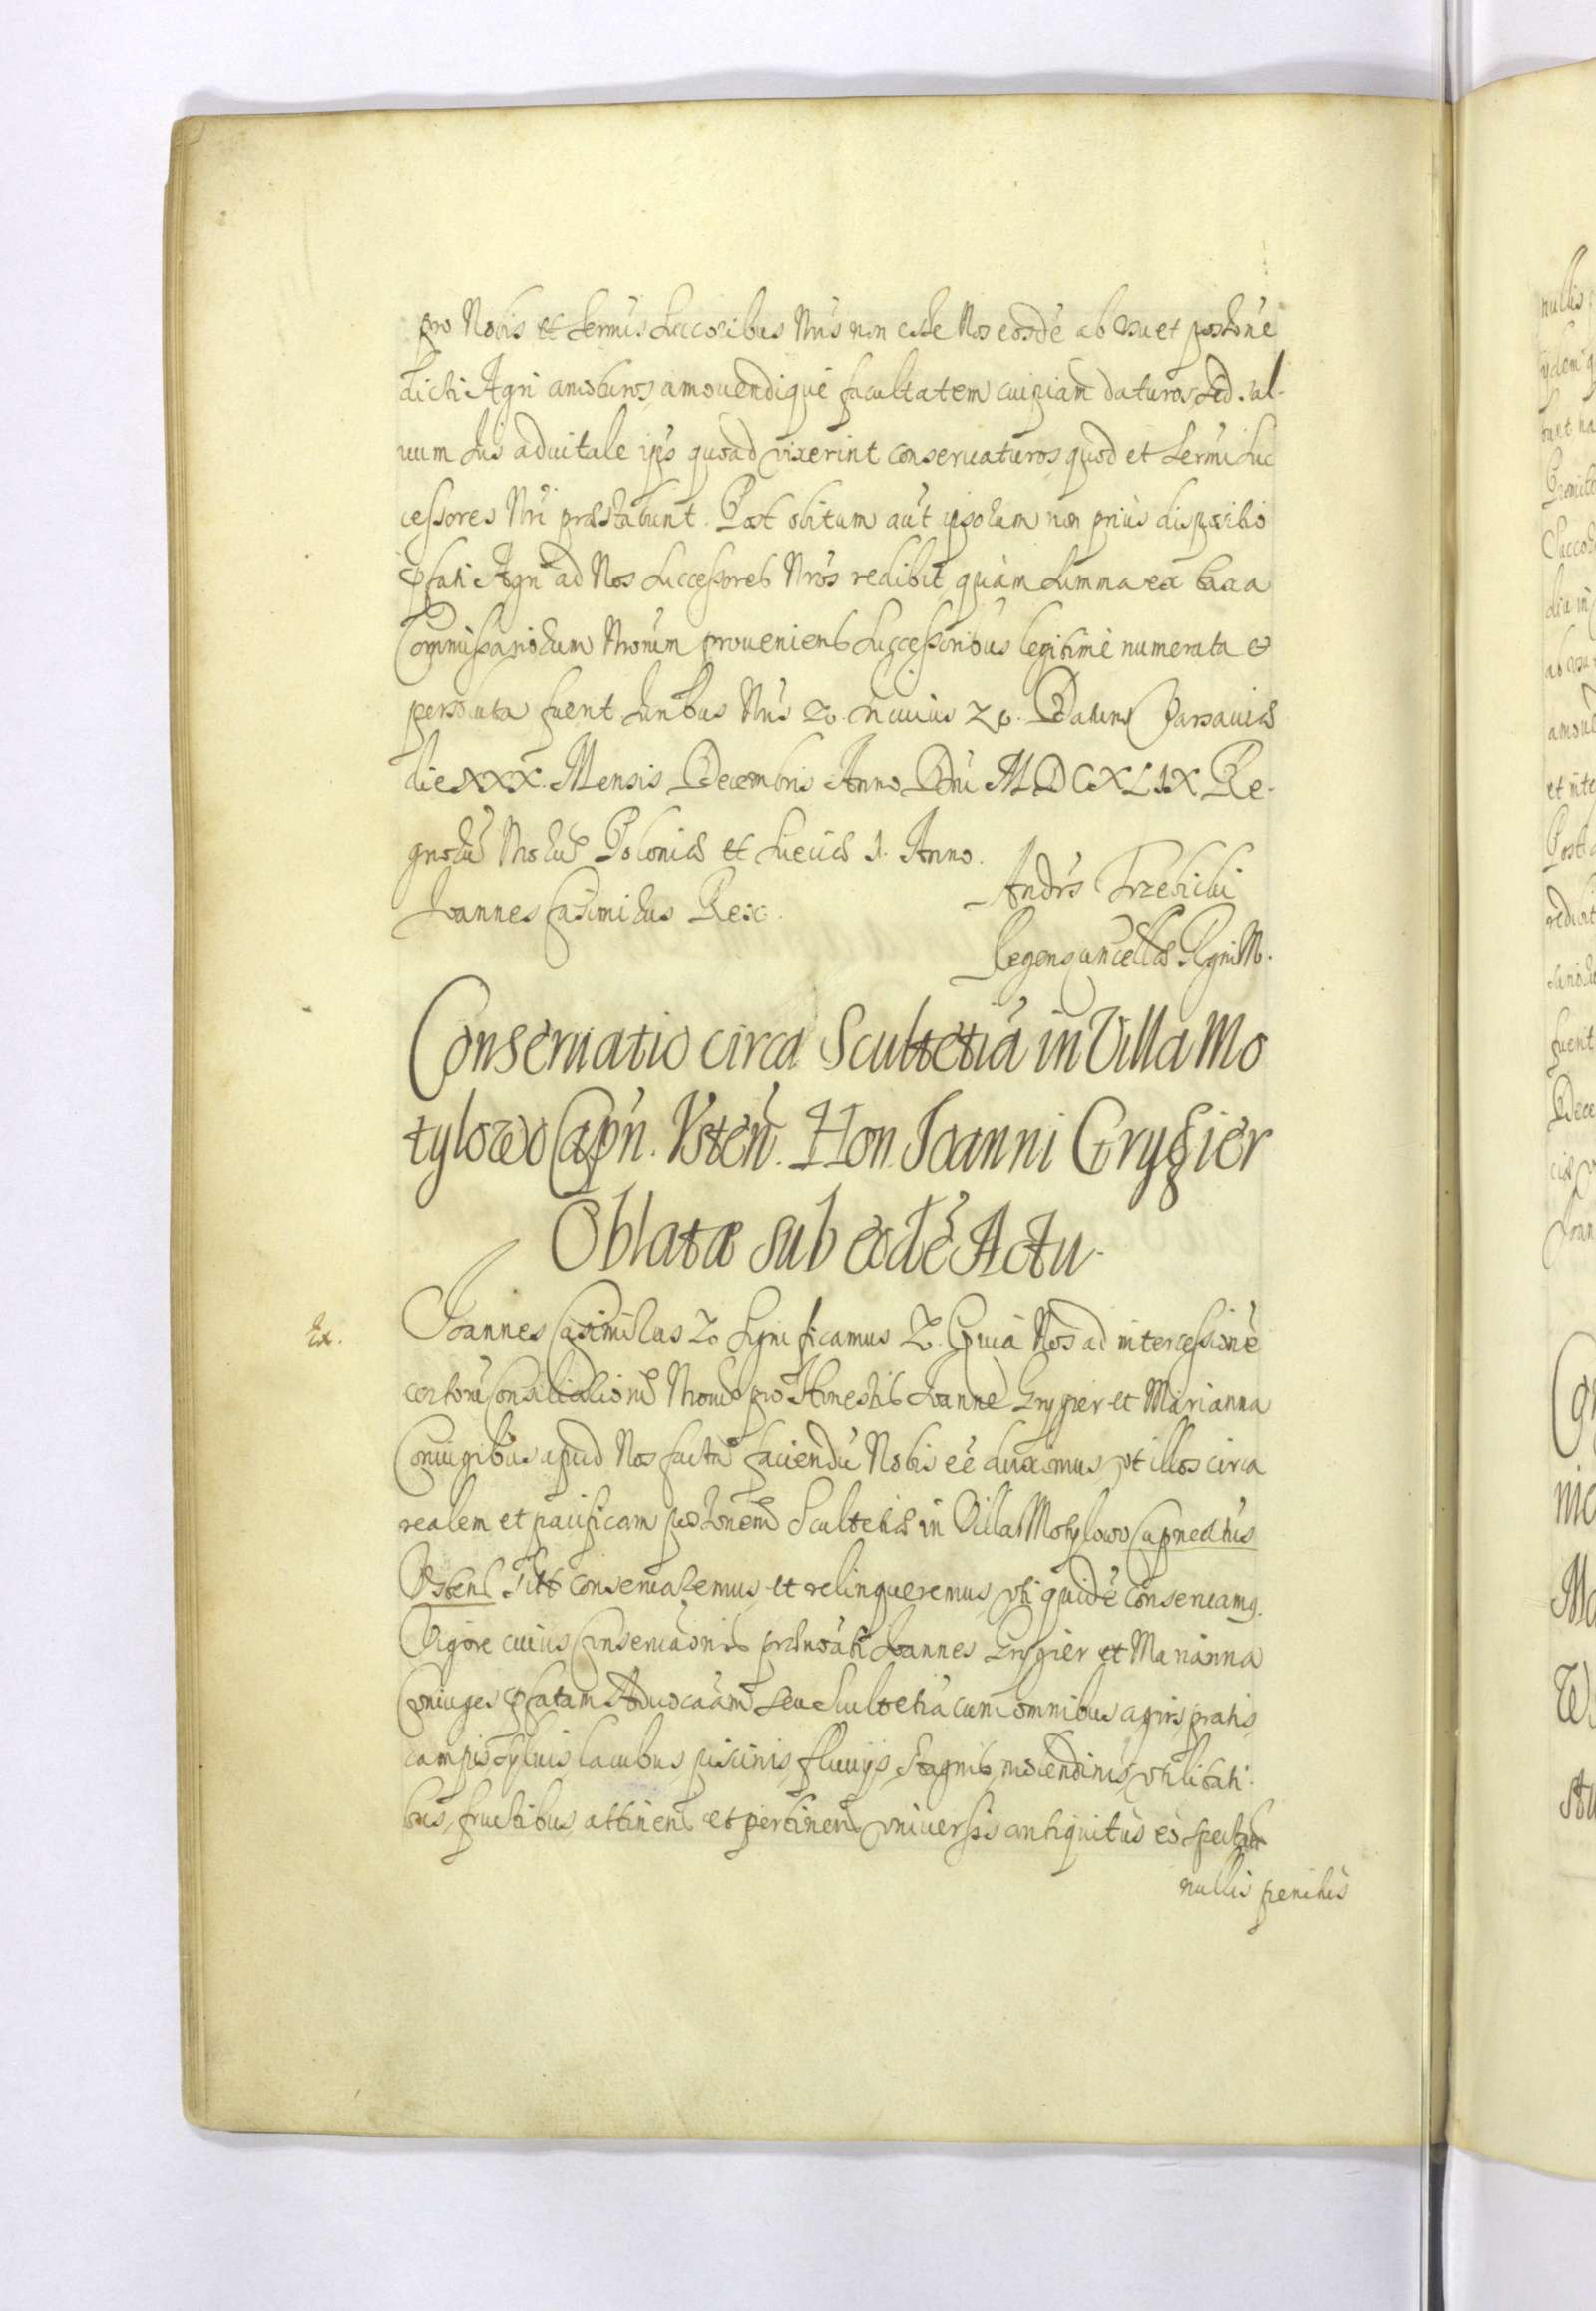 pro Nobis et Sermis Succoribus Nris non esse Nos eosdē ab usu et possone
dicti Agri amoturos, amovendique facultatem cuipiam daturos, Sed sal-
uum Ius aduitale ipīs quoad vixerint conseruaturos, quod et Sermi Suc
cessores Nri præstabunt. Post obitum aūt ipsorum non prius dispositio
pfati Agri ad Nos Successores Nros redibit, quàm Summa ex taxa
Commissariorum Nrorum proueniens Successoribus legitimè numerata et
persoluta fuerit Iuribus Nris &. cuius &. Datum Varsauiæ
die XXX. Mensis Decembris Anno Dni MDCXLIX Re-
gnorū Nrorū Poloniæ et Sueciæ 1. Anno.
Ioannes Casimirus Rex.
Andrs Trzebicki
Regens Cancellæ Regni Mp.
Conseruatio circa Scultetiā in Villa Mo
tylowo Capn. Vsten. Hon. Ioanni Grygier
Oblatæ sub eodē Actu.
Ex.
Ioannes Casimirus & Significamus &. Quia Nos ad intercessionē
certorū Consiliariorū Nrorū pro Honestis Ioanne Grygier et Marianna
Coniugibus apud Nos factā faciendū Nobis eē duximus, vt illos circa
realem et pacificam possonem Scultetiæ in Villa Motylowo Capneatus
Vsten sitæ conseruaremus et relinqueremus, vti quidē conseruamus.
Vigore cuius Conseruaonis prænoāti Ioannes Grygier et Marianna
Coniuges pfatam Aduocaām seu Scultetiā cum omnibus agris, pratis,
campis, syluis, lacubus, piscinis, fluuijs, stagnis, molendinis, vtilitati-
bus, fructibus, attinen et pertinen vniuersis antiquitùs eò spectan
nullis penitùs